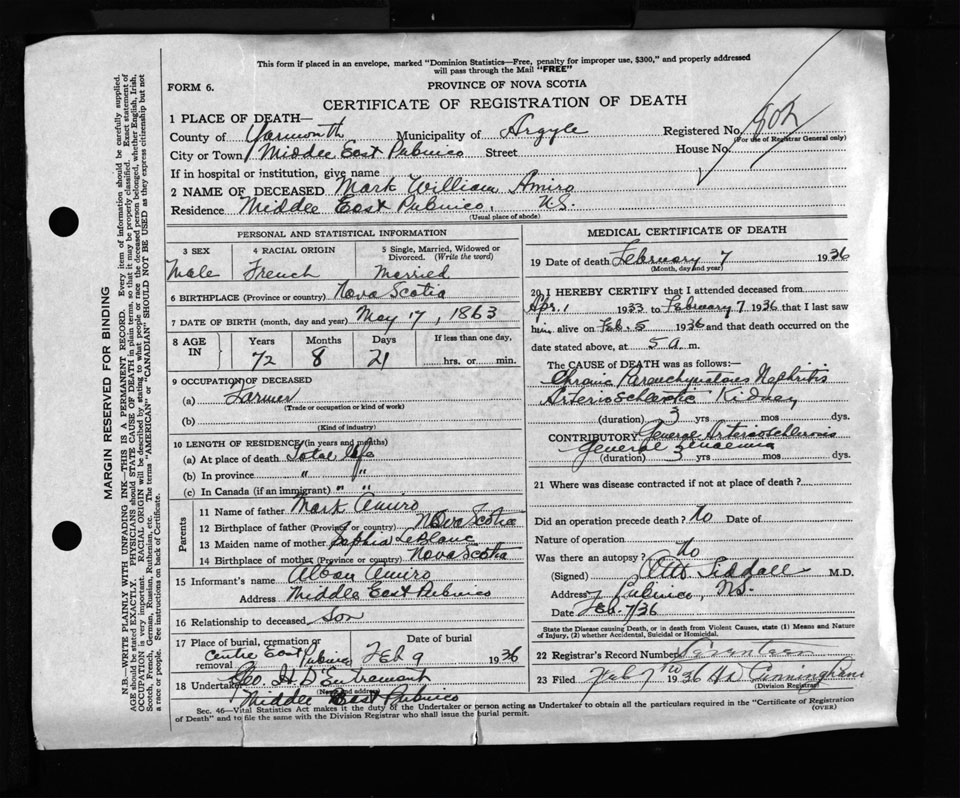 This form if placed in an envelope, marked "Dominion Statistics—Free, penalty for improper use, $300," and properly addressed
will pass through the Mail "FREE"
FORM 6.
PROVINCE OF NOVA SCOTIA
CERTIFICATE OF REGISTRATION OF DEATH
1 PLACE OF DEATH—
County of Yarmouth Municipality of Argyle Registered No.
(For use of Registrar General only)
City or Town Middle East Pubnico Street House No.
If in hospital or institution, give name
2 NAME OF DECEASED Mark William Amiro
Residence Middle East Pubnico, N.S.
(Usual place of abode)
PERSONAL AND STATISTICAL INFORMATION
3 SEX 4 RACIAL ORIGIN 5 Single, Married, Widowed or
Divorced. (Write the word)
Male French Married
6 BIRTHPLACE (Province or country) Nova Scotia
7 DATE OF BIRTH (month, day and year) May 17, 1863
8 AGE IN Years Months Days If less than one day,
72 8 21 hrs. or min.
9 OCCUPATION OF DECEASED
(a) Farmer
(Trade or occupation or kind of work)
(b)
(Kind of industry)
10 LENGTH OF RESIDENCE (in years and months)
(a) At place of death Total life
(b) In province " "
(c) In Canada (if an immigrant) " "
Parents
11 Name of father Mark Amiro
12 Birthplace of father (Province or country) Nova Scotia
13 Maiden name of mother Sophia LeBlanc
14 Birthplace of mother (Province or country) Nova Scotia
15 Informant's name Alban Amiro
Address Middle East Pubnico
16 Relationship to deceased Son
17 Place of burial, cremation or removal Centre East Pubnico Date of burial Feb 9 1936
18 Undertaker Geo. H D'Entremont
(Name and address)
Middle East Pubnico
MEDICAL CERTIFICATE OF DEATH
19 Date of death February 7 1936
(Month, day and year)
20 I HEREBY CERTIFY that I attended deceased from
Apr. 1 1933 to February 7 1936 that I last saw
him alive on Feb. 5 1936 and that death occurred on the
date stated above, at 5 a m.
The CAUSE OF DEATH was as follows:
Chronic Parenchymatous Nephritis
Arteriosclerotic Kidney
(duration) 3 yrs mos dys.
CONTRIBUTORY General Arteriosclerosis
General
(duration) 3 yrs mos dys.
21 Where was disease contracted if not at place of death?
Did an operation precede death? No Date of
Nature of operation
Was there an autopsy? No
(Signed) Siddall M.D.
Address Pubnico, N.S.
Date Feb. 7/36
State the Disease causing Death, or in death from Violent Causes, state (1) Means and Nature
of Injury, (2) whether Accidental, Suicidal or Homicidal.
22 Registrar's Record Number Seventeen
23 Filed Feb 7th 1936 Cunningham
(Division Registrar)
Sec. 46—Vital Statistics Act makes it the duty of the Undertaker or person acting as Undertaker to obtain all the particulars required in the "Certificate of Registration
of Death" and to file the same with the Division Registrar who shall issue the burial permit.
(OVER)
MARGIN RESERVED FOR BINDING
N.B.—WRITE PLAINLY WITH UNFADING INK—THIS IS A PERMANENT RECORD. Every item of information should be carefully supplied.
AGE should be stated EXACTLY. PHYSICIANS should STATE CAUSE OF DEATH in plain terms, so that it may be properly classified. Exact statement of
OCCUPATION is very important. RACIAL ORIGIN will be described by stating to what people or race the deceased person belonged, whether English, Irish,
Scotch, French, German, Russian, Ruthenian, etc. The terms "AMERICAN" or "CANADIAN" SHOULD NOT BE USED as they express citizenship but not
a race or people. See instructions on back of Certificate.